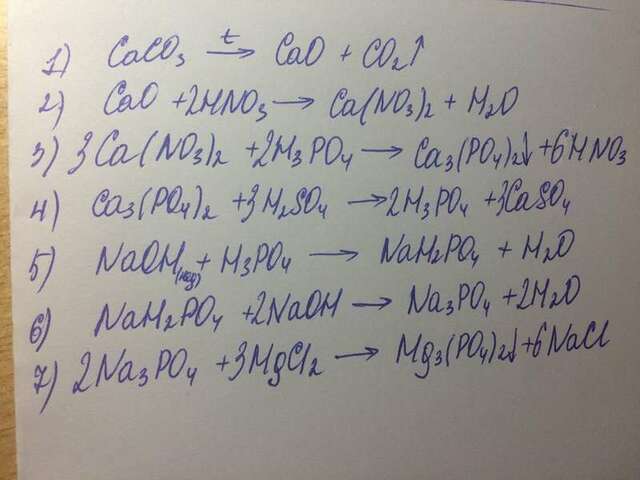 1) CaCO₃ —t→ CaO + CO₂↑
2) CaO + 2HNO₃ → Ca(NO₃)₂ + H₂O
3) 3Ca(NO₃)₂ + 2H₃PO₄ → Ca₃(PO₄)₂↓ + 6HNO₃
4) Ca₃(PO₄)₂ + 3H₂SO₄ → 2H₃PO₄ + 3CaSO₄
5) NaOH + H₃PO₄ → NaH₂PO₄ + H₂O
6) NaH₂PO₄ + 2NaOH → Na₃PO₄ + 2H₂O
7) 2Na₃PO₄ + 3MgCl₂ → Mg₃(PO₄)₂↓ + 6NaCl